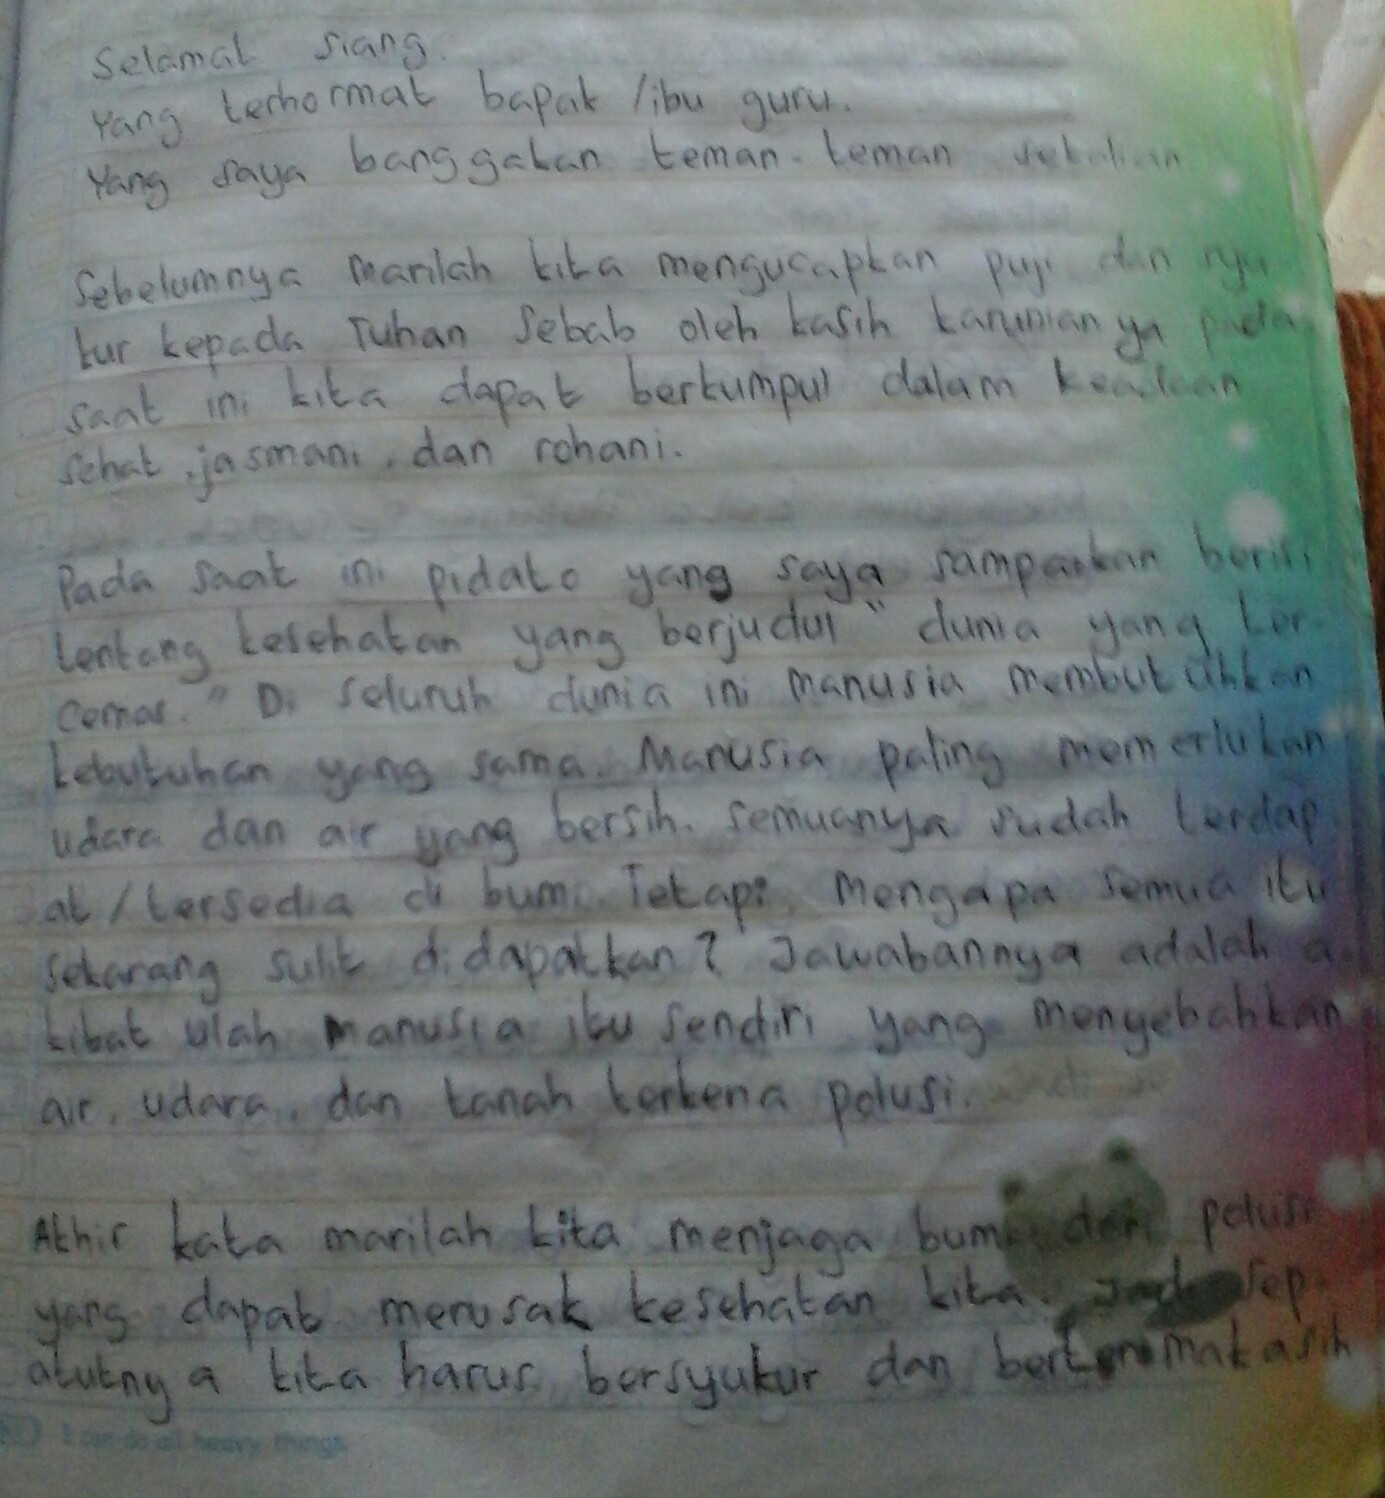 Selamat siang.
Yang terhormat bapak /ibu guru.
Yang saya banggakan teman-teman sekalian
Sebelumnya marilah kita mengucapkan puji dan syu
kur kepada Tuhan Sebab oleh kasih karunianya pada
saat ini kita dapat berkumpul dalam keadaan
sehat, jasmani, dan rohani.
Pada saat ini pidato yang saya sampaikan berisi
tentang kesehatan yang berjudul "dunia yang ter-
cemar." Di seluruh dunia ini manusia membutuhkan
kebutuhan yang sama. Manusia paling memerlukan
udara dan air yang bersih. Semuanya sudah terdap
at/tersedia di bumi. Tetapi, mengapa semua itu
sekarang sulit didapatkan? Jawabannya adalah a-
kibat ulah manusia itu sendiri yang menyebabkan
air, udara, dan tanah terkena polusi.
Akhir kata marilah kita menjaga bumi dari polusi
yang dapat merusak kesehatan kita. Jadi sep-
atutnya kita harus bersyukur dan berterimakasih
I can do all heavy things